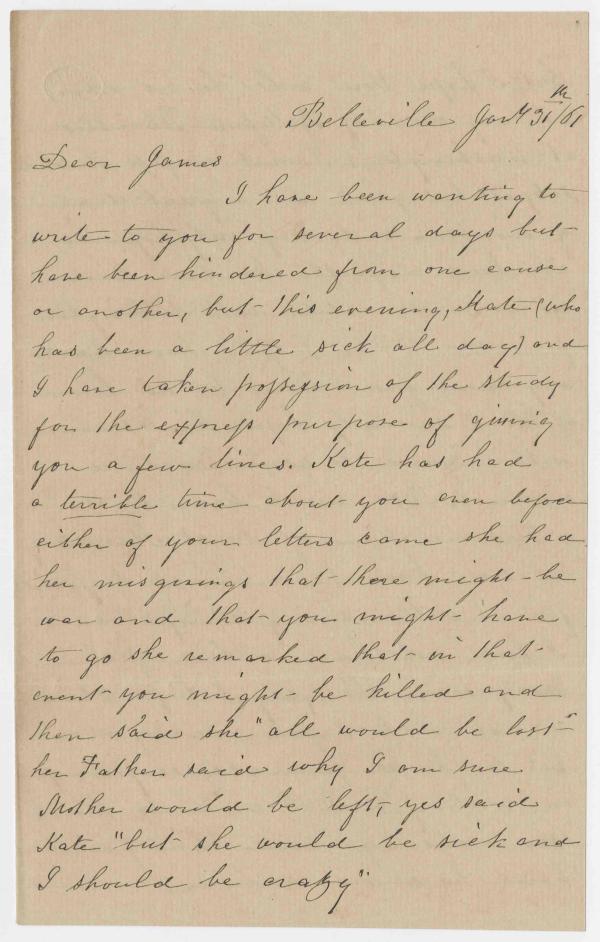 Belleville Jany 31th/61
Dear James
I have been wanting to
write to you for several days but
have been hindered from one cause
or another, but this evening, Kate (who
has been a little sick all day) and
I have taken possession of the study
for the express purpose of giving
you a few lines. Kate has had
a terrible time about you even before
either of your letters came she had
her misgivings that there might be
war and that you might have
to go she remarked that in that
event you might be killed and
then said she "all would be lost"
her Father said why I am sure
Mother would be left, yes said
Kate "but she would be sick and
I should be crazy"